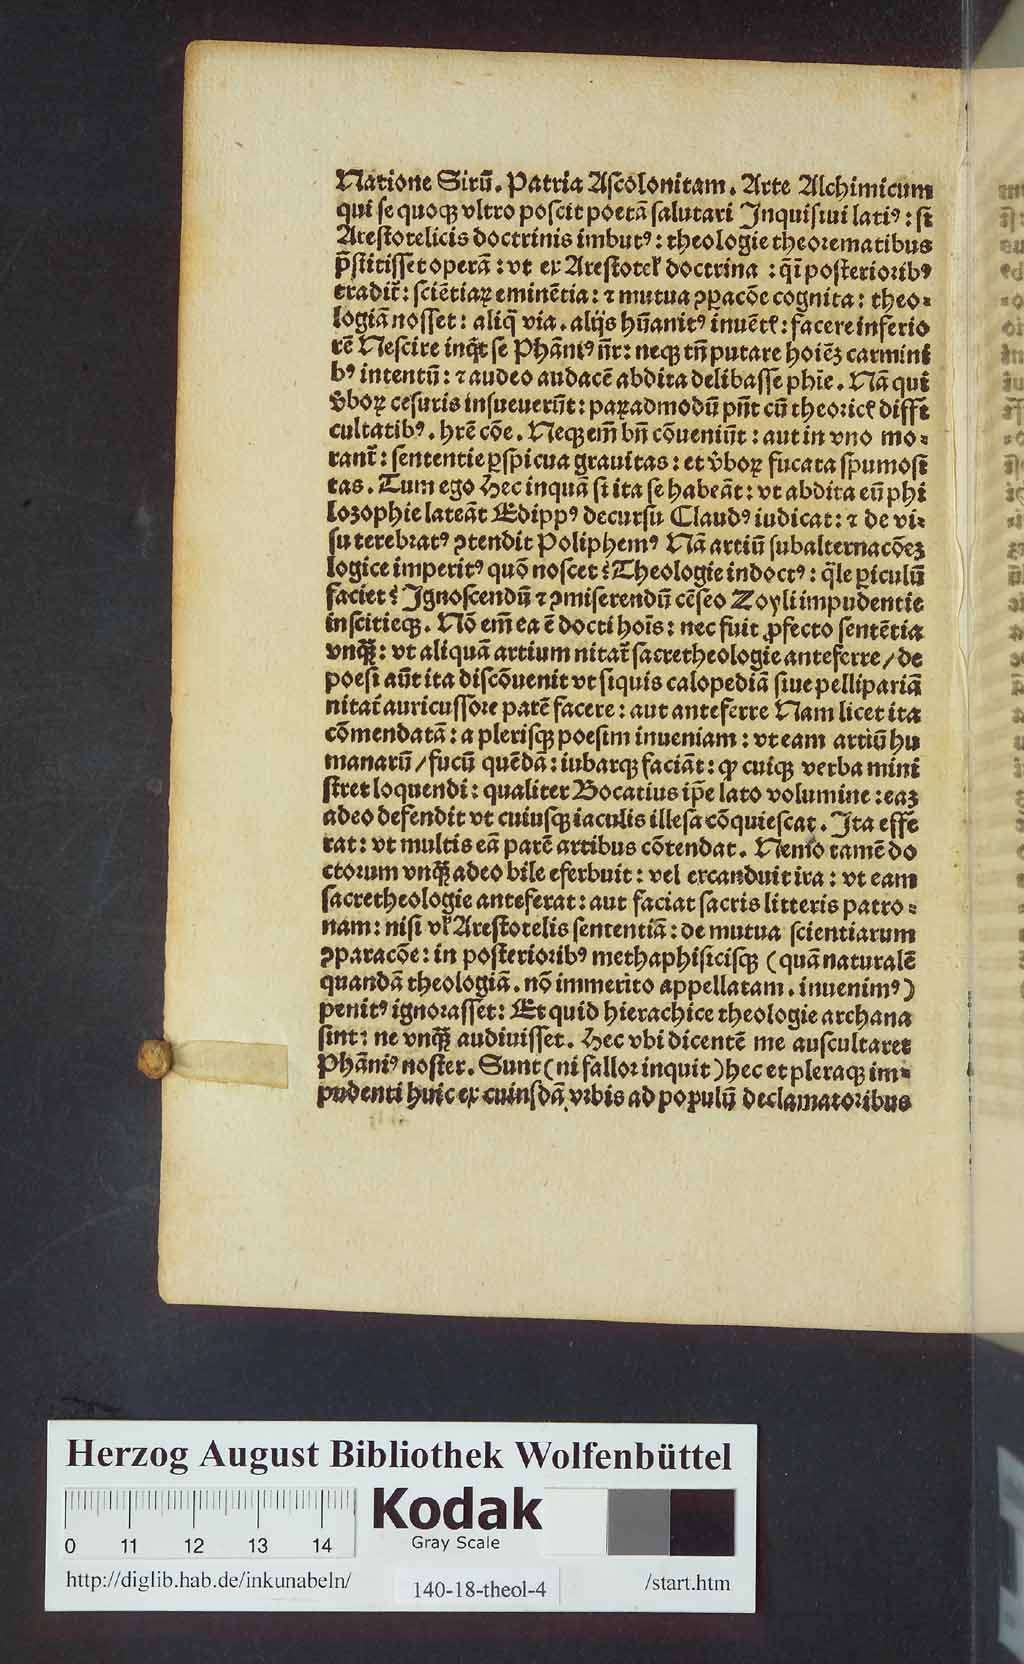 Natione Sirū. Patria Ascolonitam. Arte Alchimicum
qui se quoqꝫ vltro poscit poetā salutari Inquisiui latiꝰ: si
Arestotelicis doctrinis imbutꝰ: theologie theorematibus
p̄stitisset operā: vt ex Arestotel̕ doctrina : q̄ī posterioribꝰ
tradit̄: sciētiaꝝ eminētia: ⁊ mutua ꝯꝑacōe cognita: theo⸗
logiā nosset: aliq̄ via. alijs hūanitꝰ inuētꝭ: facere inferio
rē Nescire inq̄t se Phāniꝰ nr̄: neqꝫ tn̄ putare hoiēꝫ carmini
bꝰ intentū: ⁊ audeo audacē abdita delibasse phīe. Nā qui
v̄boꝝ cesuris insueuerūt: paꝝ admodū pn̄t cū theoricꝭ diffi
cultatibꝰ. hr̄e cōe. Neqꝫ em̄ bn̄ cōueniūt: aut in vno mo⸗
rant̄: sententie ꝑspicua grauitas: et v̄boꝝ fucata spumosi
tas. Tum ego Hec inquā si ita se habeāt: vt abdita eū phi
lozophie lateāt Edippꝰ decursu Claudꝰ iudicat: ⁊ de vi⸗
su terebratꝰ ꝯtendit Poliphemꝰ Nā artiū subalternacōeꝫ
logice imperitꝰ quō noscet? Theologie indoctꝰ: q̄le ꝑiculū
faciet? Ignoscendū ⁊ ꝯmiserendū cēseo Zoyli impudentie
inscitieqꝫ. Nō em̄ ea ē docti hoīs: nec fuit ꝓfecto sentētia
vnqꝫ̄: vt aliquā artium nitat̄ sacretheologie anteferre / de
poesi aūt ita discōuenit vt siquis calopediā siue pellipariā
nitat̄ auricussore parē facere: aut anteferre Nam licet ita
cōmendatā: a plerisqꝫ poesim inueniam: vt eam artiū hu
manarū / fucū quēdā: iubarqꝫ faciāt: ꝙ cuiqꝫ verba mini
stret loquendi: qualiter Bocatius ip̄e lato volumine : eaꝫ
adeo defendit vt cuiusqꝫ iaculis illesa cōquiescat. Ita effe
rat: vt multis eā parē artibus cōtendat. Nemo tamē do
ctorum vnqꝫ̄ adeo bile eferbuit: vel excanduit ira: vt eam
sacretheologie anteferat: aut faciat sacris litteris patro⸗
nam: nisi vl̕ Arestotelis sententiā: de mutua scientiarum
ꝯparacōe: in posterioribꝰ methaphisicisqꝫ (quā naturalē
quandā theologiā. nō immerito appellatam. inuenimꝰ)
penitꝰ ignorasset: Et quid hierachice theologie archana
sint: ne vnqꝫ̄ audiuisset. Hec vbi dicentē me auscultaret
Phāniꝰ noster. Sunt (ni fallor inquit) hec et pleraqꝫ im⸗
pudenti huic ex cuiusdā vrbis ad populū declamatoribus
Herzog August Bibliothek Wolfenbüttel
Kodak
Gray Scale
0 11 12 13 14
http://diglib.hab.de/inkunabeln/
140-18-theol-4
/start.htm